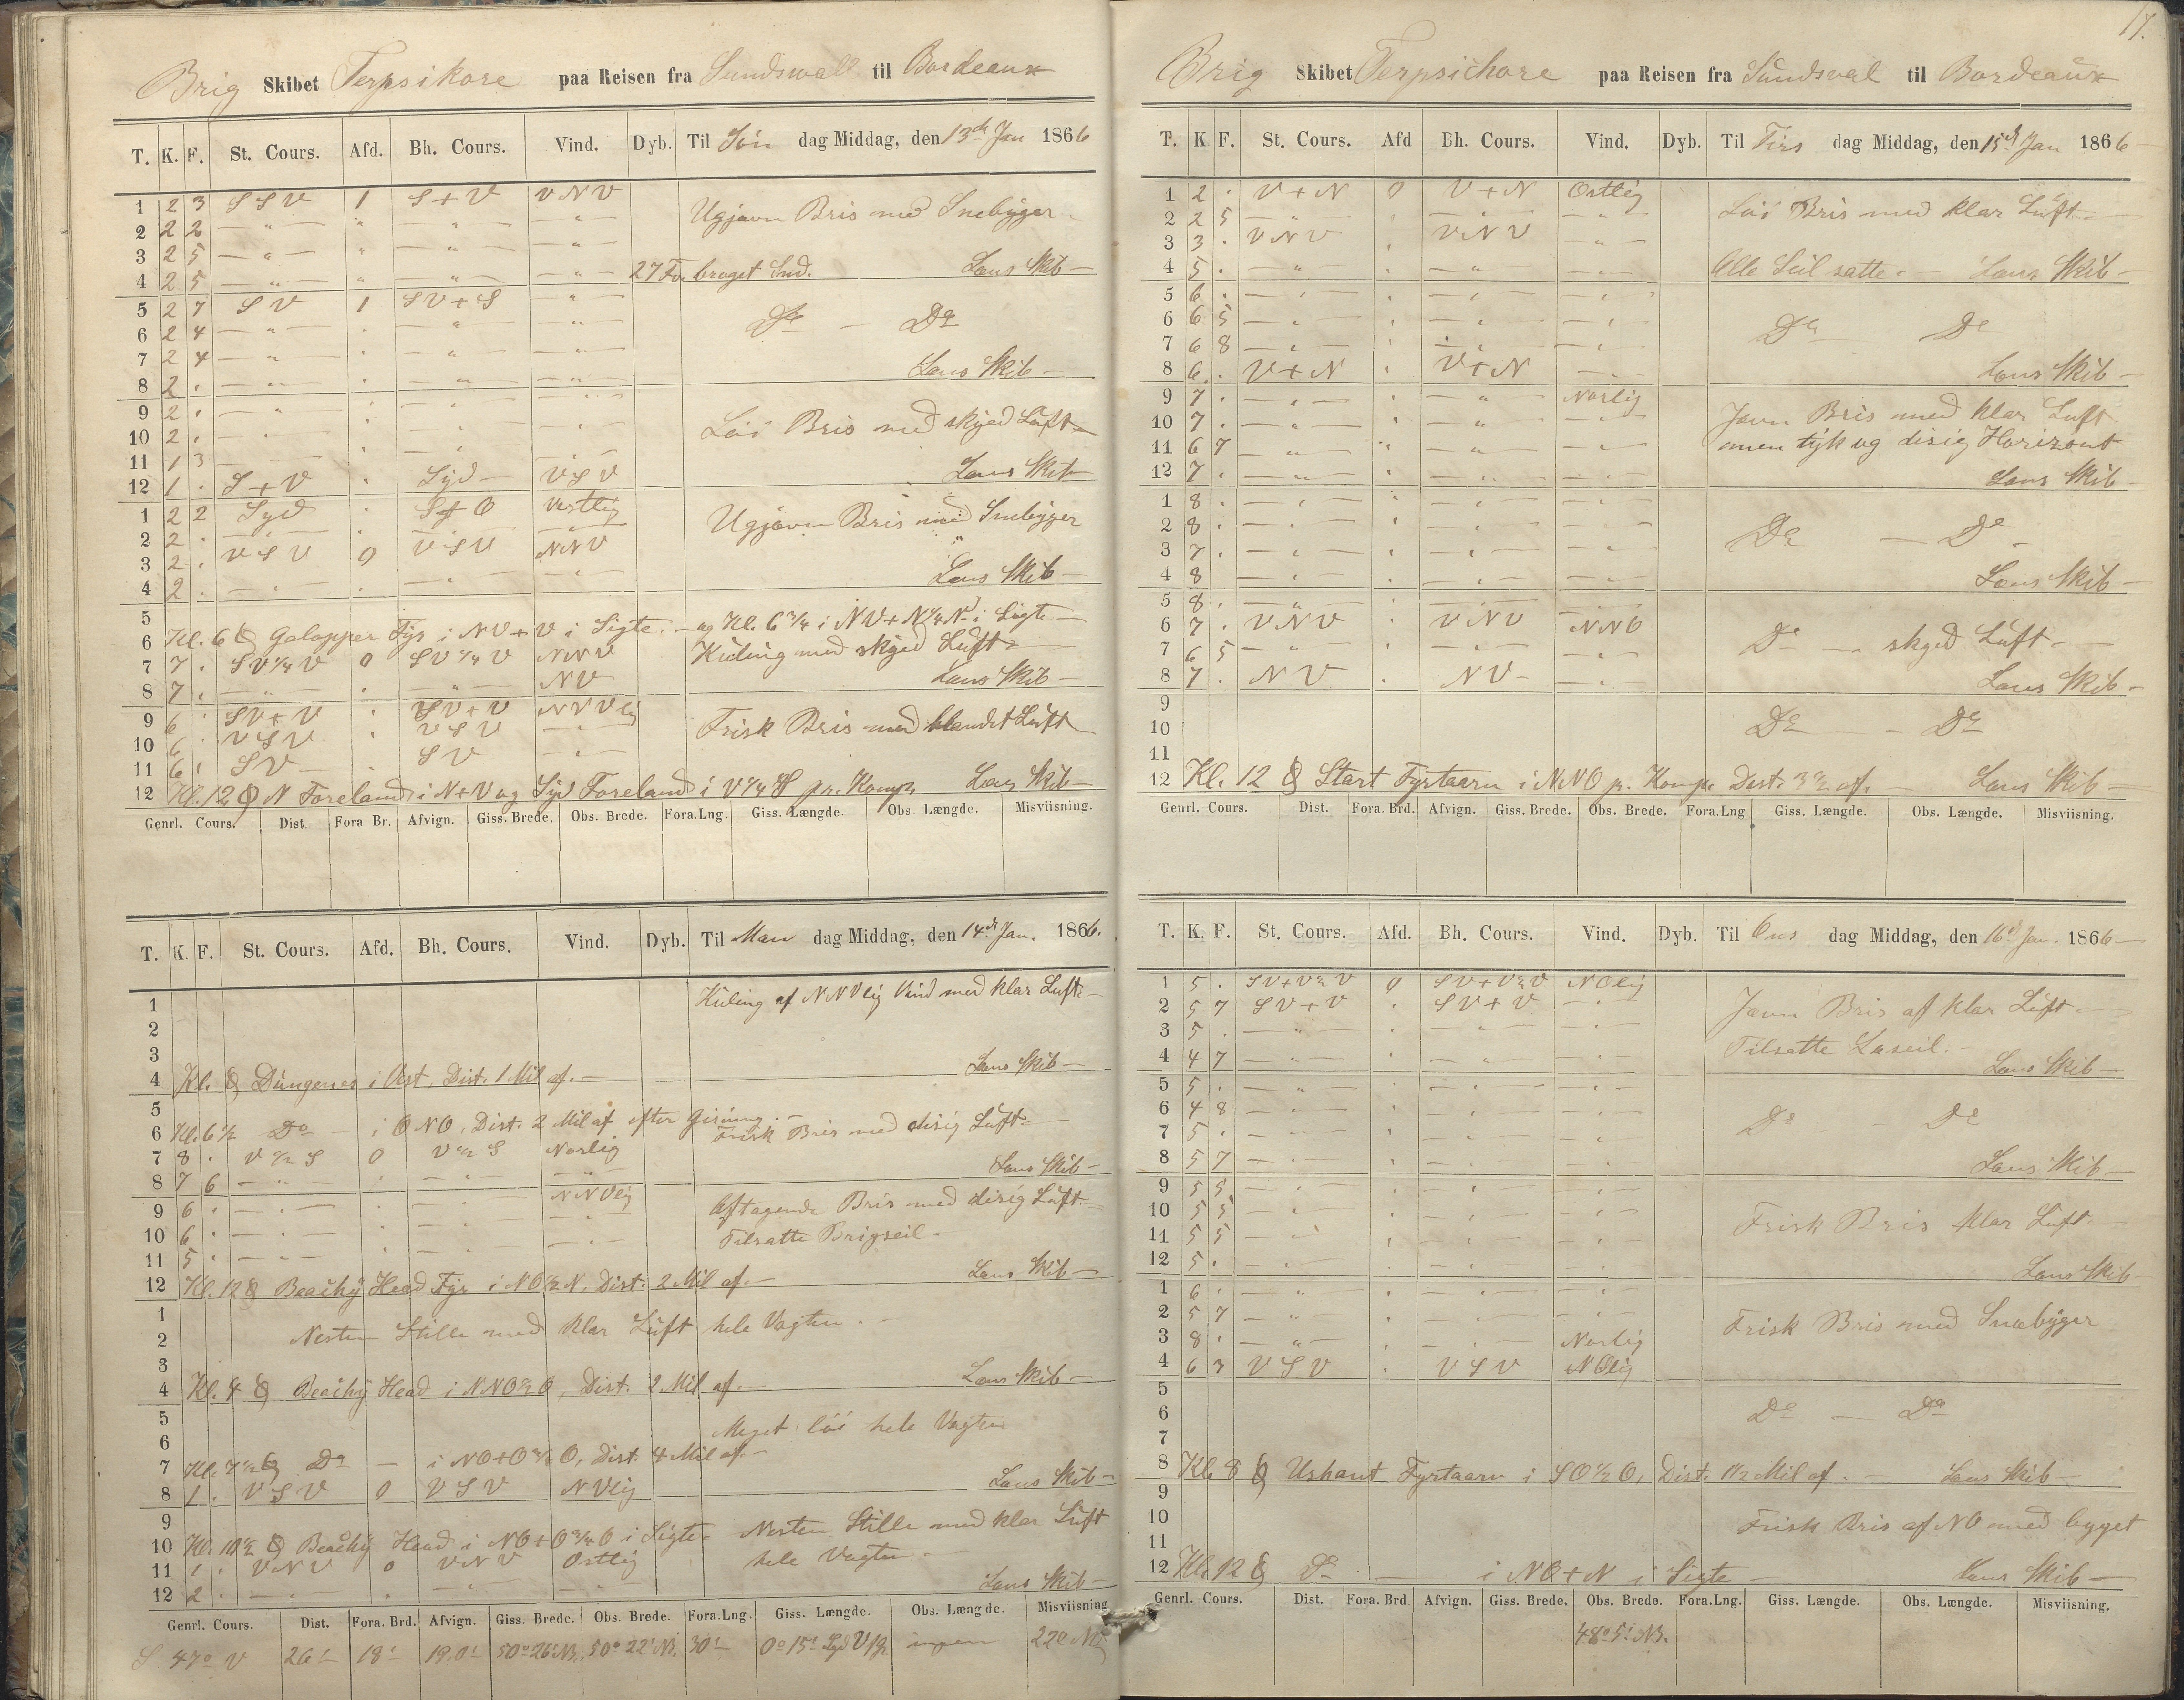 Brig Skibet Terpsikore paa Reisen fra Sundswall til Bordeaux
T. K. F. St. Cours. Afd. Bh. Cours. Vind. Dyb. Til Sön dag Middag, den 13de Jan 1866
1 2 3 S S V 1 S + V V N V
2 2 2 — " — " — " — — " — Ugjævn Bris med Snebyger
3 2 5 — " — " — " — — " —
4 2 5 — " — " — " — — " — 27 Fv. broget Snd. Lens Skib —
5 2 7 S V 1 S V + S — " —
6 2 4 — " — " — " — — " — Do — Do
7 2 4 — " — " — " — — " —
8 2 . — " — " — " — — " — Lens Skib —
9 2 . — " — " — " — — " —
10 2 . — " — " — " — — " — Löi Bris med skyed Luft
11 1 3 — " — " — " — — " —
12 1 . S + V " Syd — V S V Lens Skib —
1 2 2 Syd " S + O Vestlig
2 2 . — " — " — " — — " — Ugjævn Bris med Snebyger
3 2 . V S V 0 V S V N N V
4 2 . — " — " — " — — " — Lens Skib —
5
6 Kl. 6 Galopper Fyr i NV + V i Sigte. — og Kl. 6 3/4 i NV + N 1/4 N i Sigte —
7 7 . S V 1/4 V 0 S V 1/4 V N N V Kuling med skyed Luft
8 7 . — " — " — " — N V Lens Skib —
9 6 . S V + V " S V + V N N V lig
10 6 . V S V " V S V — " — Frisk Bris med blandet Luft
11 6 . S V — " S V — " —
12 Kl. 12 N Foreland i N + V og Syd Foreland i V 1/4 S pr. Komp. Lens Skib —
Genrl. Cours. Dist. Fora Br. Afvign. Giss. Brede. Obs. Brede. Fora.Lng. Giss. Længde. Obs. Længde. Misviisning.
T. K. F. St. Cours. Afd. Bh. Cours. Vind. Dyb. Til Man dag Middag, den 14de Jan. 1866.
1 Kuling af N N V lig Vind med klar Luft —
2
3
4 Kl. Dungenes i Vest. Dist. 1 Mil af. — Lens Skib —
5
6 Kl. 6 1/2 Do — i O N O, Dist. 2 Mil af efter Gisning. — Frisk Bris med disig Luft
7 8 . V 1/2 S 0 V 1/2 S Norlig
8 7 6 — " — " — " — — " — Lens Skib —
9 6 . — " — " — " — N N V lig Aftagende Bris med disig Luft
10 6 . — " — " — " — — " — Tilsatte Brigseil —
11 5 . — " — " — " — — " —
12 Kl. 12 Beachy Head Fyr i NO 1/2 N. Dist. 2 Mil af. — Lens Skib —
1
2 Nesten Stille med klar Luft hele Vagten.
3
4 Kl. 4 Beachy Head i N N O 1/2 O, Dist. 2 Mil af. — Lens Skib —
5 Meget löi hele Vagten
6
7 Kl. 7 1/2 Do — i NO + O 3/4 O, Dist. 4 Mil af. —
8 1 . V S V 0 V S V N V lig Lens Skib —
9
10 Kl. 10 1/2 Beachy Head i NO + O 3/4 O i Sigte Nesten Stille med klar Luft
11 1 . V N V 0 V N V Ostlig hele Vagten —
12 2 . — " — " — " — — " — Lens Skib —
Genrl. Cours. Dist. Fora. Brd. Afvign. Giss. Brede. Obs. Brede. Fora.Lng. Giss. Længde. Obs. Længde. Misviisning
S 47° V 26' 18' 19.0' 50° 26' NB. 50° 22' NB. 30' 0° 15' ingen 22°
17.
Brig Skibet Terpsichore paa Reisen fra Sundsval til Bordeaux
T. K. F. St. Cours. Afd Bh. Cours. Vind. Dyb. Til Tirs dag Middag, den 15de Jan 1866
1 2 . V + N 0 V + N Ostlig Löi Bris med klar Luft —
2 2 5 — " — " — " — — " —
3 3 . V N V " V N V — " —
4 5 . — " — " — " — — " — Alle Seil satte. — Lens Skib —
5 6 . — " — " — " — — " —
6 6 5 — " — " — " — — " — Do — Do
7 6 8 — " — " — " — — " —
8 6 . V + N " V + N — " — Lens Skib —
9 7 . — " — " — " — Norlig Jævn Bris med klar Luft
10 7 . — " — " — " — — " — men tyk og disig Horizont
11 6 7 — " — " — " — — " —
12 7 . — " — " — " — — " — Lens Skib —
1 8 . — " — " — " — — " —
2 8 . — " — " — " — — " — Do — Do
3 7 . — " — " — " — — " —
4 8 — " — " — " — — " — Lens Skib —
5 8 . — " — " — " — — " —
6 7 . V N V " V N V N N O Do — skyed Luft —
7 6 5 — " — " — " — — " —
8 7 . N V " N V — — " — Lens Skib —
9
10 Do — Do
11
12 Kl. 12 Start Fyrtaarn i N N O p. Komp. Dist. 3 1/2 af. — Lens Skib —
Genrl. Cours. Dist. Fora. Brd. Afvign. Giss. Brede. Obs. Brede. Fora.Lng Giss. Længde. Obs. Længde. Misviisning.
T. K. F. St. Cours. Afd. Bh. Cours. Vind. Dyb. Til Ons dag Middag, den 16de Jan. 1866
1 5 . S V + V 1/2 V 0 S V + V 1/2 V N O lig Jævn Bris af klar Luft
2 5 7 S V + V " S V + V — " —
3 5 . — " — " — " — — " — Tilsatte Læseil. —
4 4 7 — " — " — " — — " — Lens Skib —
5 5 . — " — " — " — — " —
6 4 8 — " — " — " — — " — Do — Do
7 5 . — " — " — " — — " —
8 5 7 — " — " — " — — " — Lens Skib —
9 5 5 — " — " — " — — " —
10 5 5 — " — " — " — — " — Frisk Bris klar Luft
11 5 5 — " — " — " — — " —
12 5 . — " — " — " — — " — Lens Skib
1 6 . — " — " — " — — " —
2 5 7 — " — " — " — — " — Frisk Bris med Snebyger
3 8 . — " — " — " — Norlig
4 6 3 V S V " V S V N O lig
5
6 Do — Do
7
8 Kl. 8 Ushant Fyrtaarn i S O 1/2 O, Dist. 1 1/2 Mil af. — Lens Skib —
9
10 Frisk Bris af NO med bygget
11
12 Kl. 12 Do — i NO + N i Sigte — Lens Skib —
Genrl. Cours. Dist. Fora. Brd. Afvign. Giss. Brede. Obs. Brede. Fora.Lng. Giss. Længde. Obs. Længde. Misviisning.
48° 5' NB.